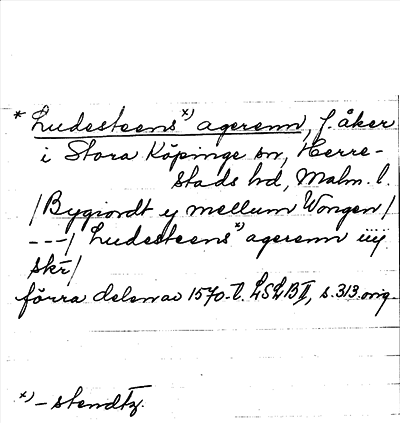 * Ludesteens x) agerenn, f. åker
i Stora Köpinge sn, Herre-
stads hd, Malm. l.
/Bygiordt y mellum Wongen/
---/ Ludesteens x) agerenn iiij
skr/
förra delen av 1570-t. LSLB II, s. 313 orig.
x) - stendtz.